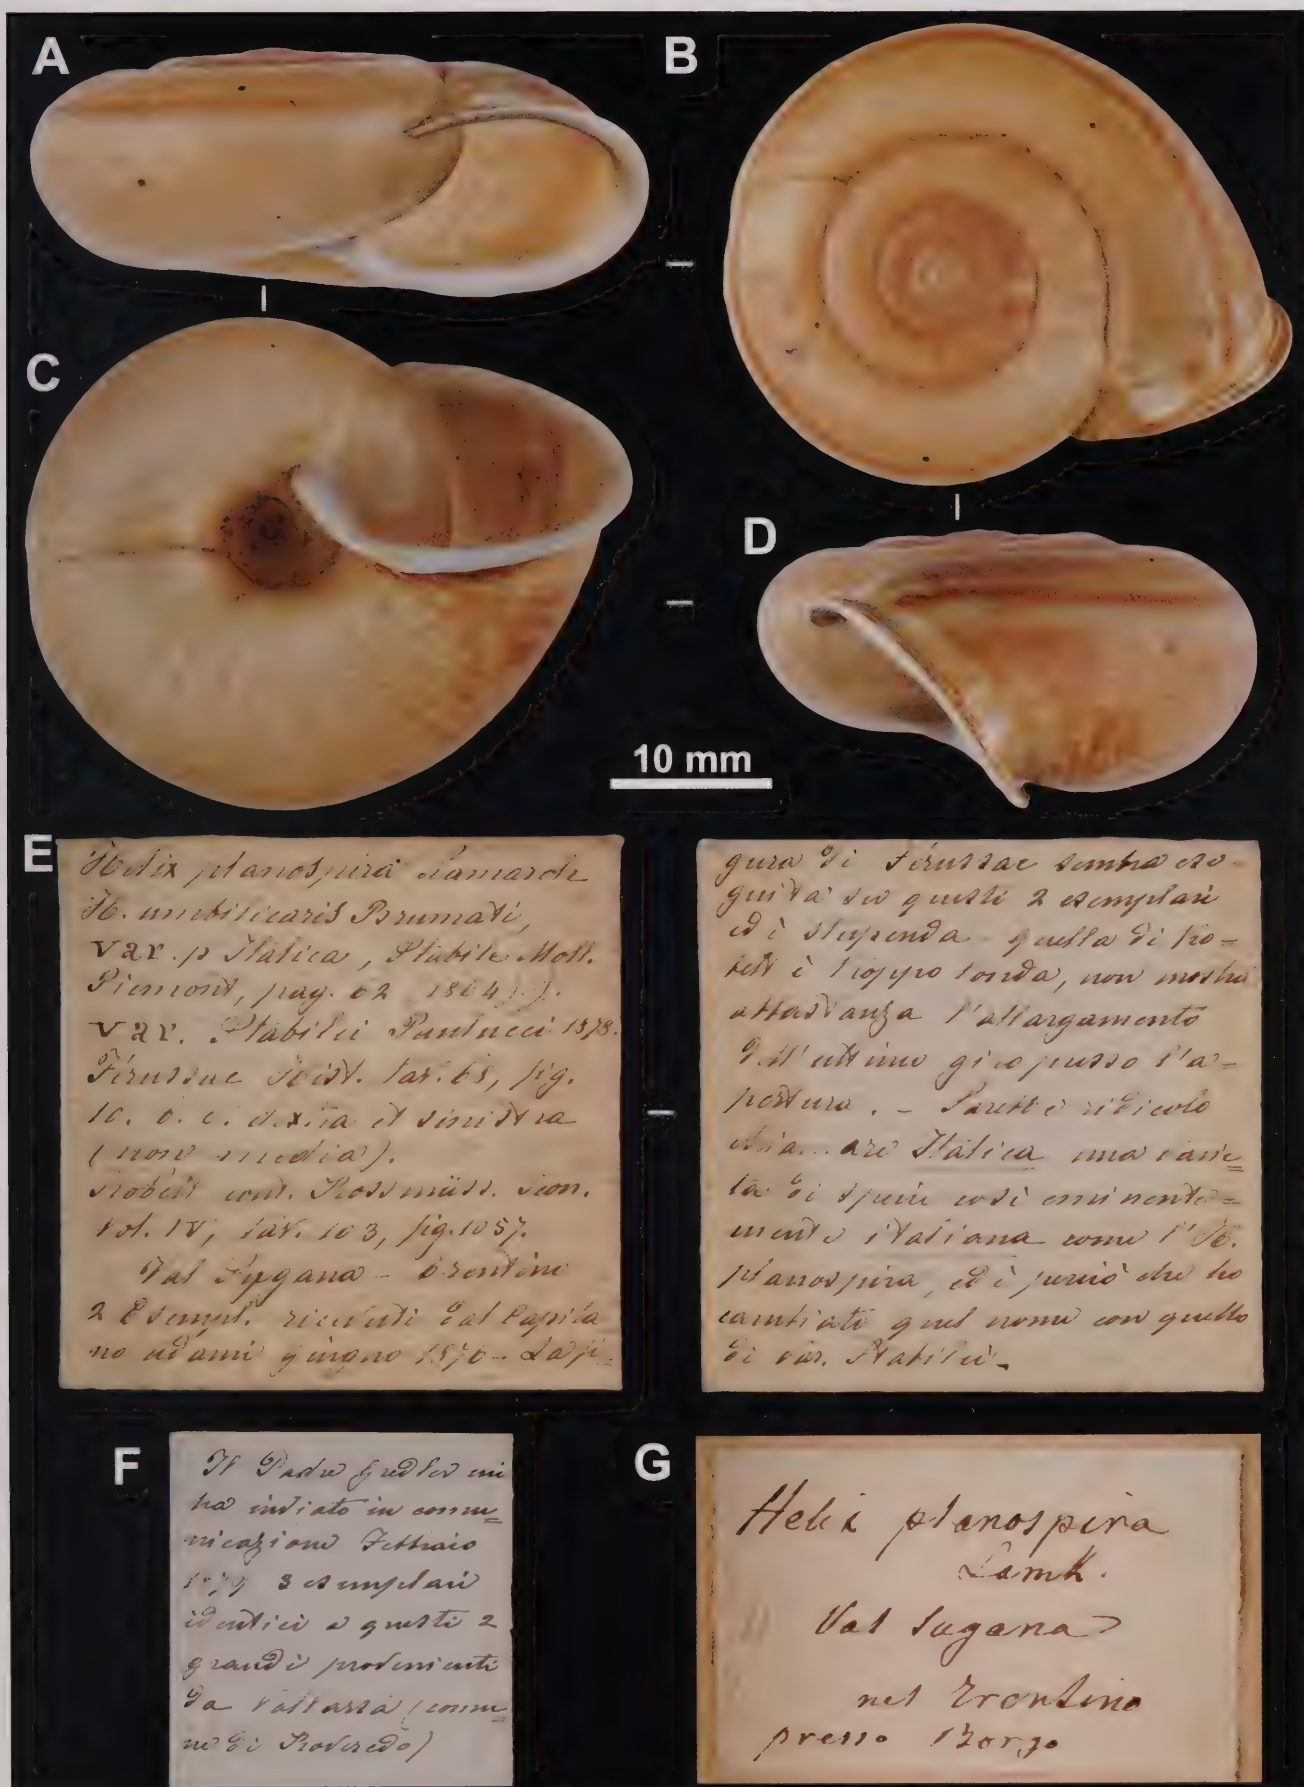 A
B
C
D
10 mm
E
Helix planospira Lamarck
H. umbilicaris Brumati,
var. β Italica, Stabile Moll.
Piemont, pag. 62 1864).
var. Stabilei Paulucci 1878.
Férussac Hist. tav. 65, fig.
10. b. c. dextra et sinistra
(non media).
Kobelt cont. Rossmäss. Icon.
Vol. IV, tav. 103, fig. 1057.
Val Sugana - Trentino
2 Esempl. ricevuti dal Capita
no Adami giugno 1876 - La fi-
gura di Férussac sembra ese-
guita su questi 2 esemplari
ed è stupenda - quella di Ko=
belt è troppo tonda, non mostra
abbastanza l'allargamento
dell'ultimo giro presso l'a-
pertura. - Sarebbe ridicolo
chiamare Italica una varie=
tà di specie così eminente=
mente italiana come l'H.
planospira, ed è perciò che ho
cambiato quel nome con quello
di var. Stabilei -
F
Il Padre Gredler mi
ha inviato in comu=
nicazione Febbraio
1879 3 esemplari
identici a questi 2
grandi provenienti
da Vallarsa (comu=
ne di Roveredo)
G
Helix planospira
Lamk.
Val Sugana
nel Trentino
presso Borgo